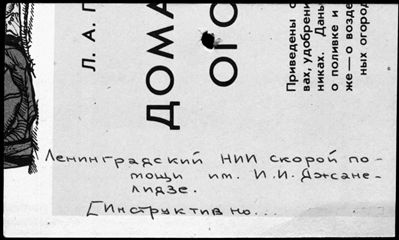 Л. А. П
ДОМА
ОГО
Приведены с
вах, удобрени
никах. Даны
о поливке и
же — о возде
ных огород
Ленинградский НИИ скорой по-
мощи им. И.И. Джане-
лидзе.
[Инструктивно...